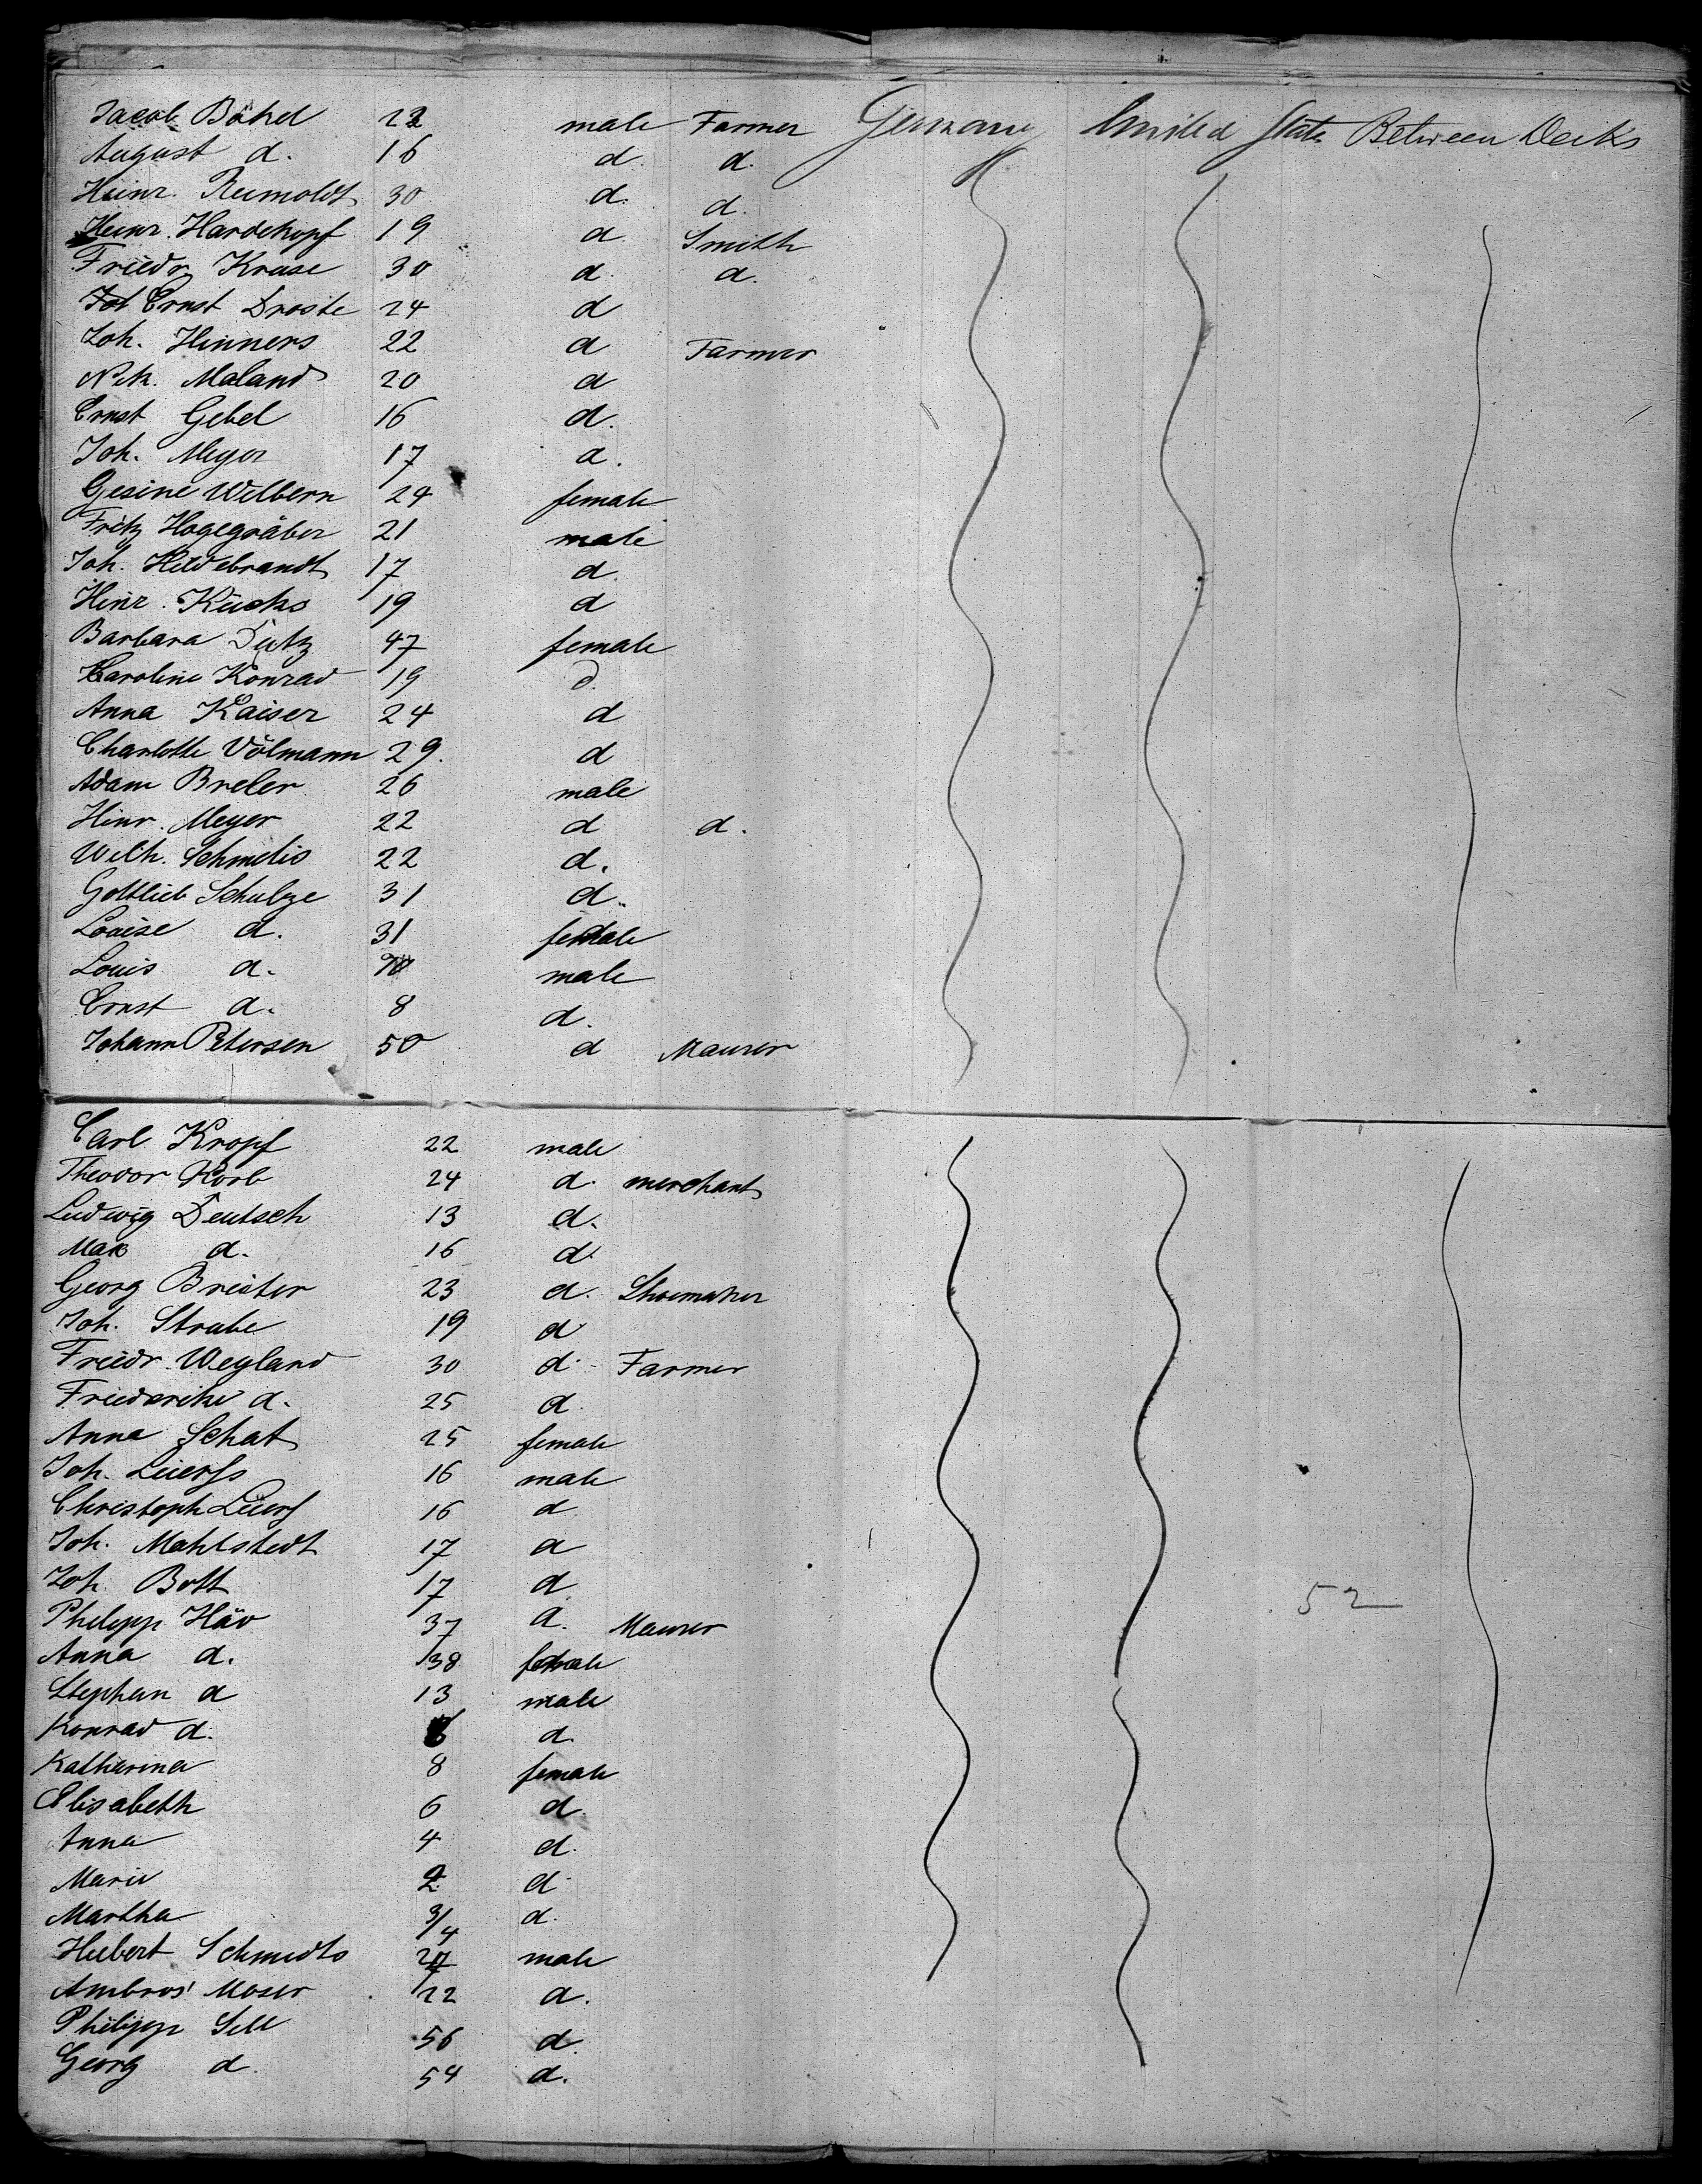 Jacob Böhel 22 male Farmer Germany United States Between Decks
August d. 16 d. d.
Heinr. Reimoldt 30 d. d.
Heinr. Hardekopf 19 d. Smith
Friedr. Kruse 30 d. d.
Ernst Droste 24 d
Joh. Hinners 22 d Farmer
Nik. Maland 20 d
Ernst Gebel 16 d.
Joh. Meyer 17 d.
Gesine Welbern 24 female
Fritz Hogegräber 21 male
Joh. Hildebrandt 17 d.
Hinr. Kücks 19 d
Barbara Dutz 47 female
Caroline Konrad 19 d.
Anna Kaiser 24 d
Charlotte Völmann 29. d
Adam Breler 26 male
Hinr. Meyer 22 d d.
Wilh. Schmelis 22 d.
Gottlieb Schulze 31 d.
Louise d. 31 female
Louis d. male
Ernst d. 8 d.
Johann Petersen 50 d Maurer
Carl Kropf 22 male
Theodor Korb 24 d. merchant
Ludwig Deutsch 13 d.
Max d. 16 d.
Georg Brester 23 d. Shoemaker
Joh. Strube 19 d
Friedr. Weyland 30 d. Farmer
Friederike d. 25 d.
Anna Schat 25 female
Joh. Lüerss 16 male
Christoph Lüers 16 d.
Joh. Mahlstedt 17 d
Joh. Bott 17 d
52
Philipp Häv 37 d. Maurer
Anna d. 38 female
Stephan d 13 male
Konrad d. d.
Katharina 8 female
Elisabeth 6 d.
Anna 4 d.
Marie 2 d
Martha 3/4 d.
Hubert Schmidts 27 male
Ambros Moser 22 d.
Philipp Sell 56 d.
Georg d. 54 d.